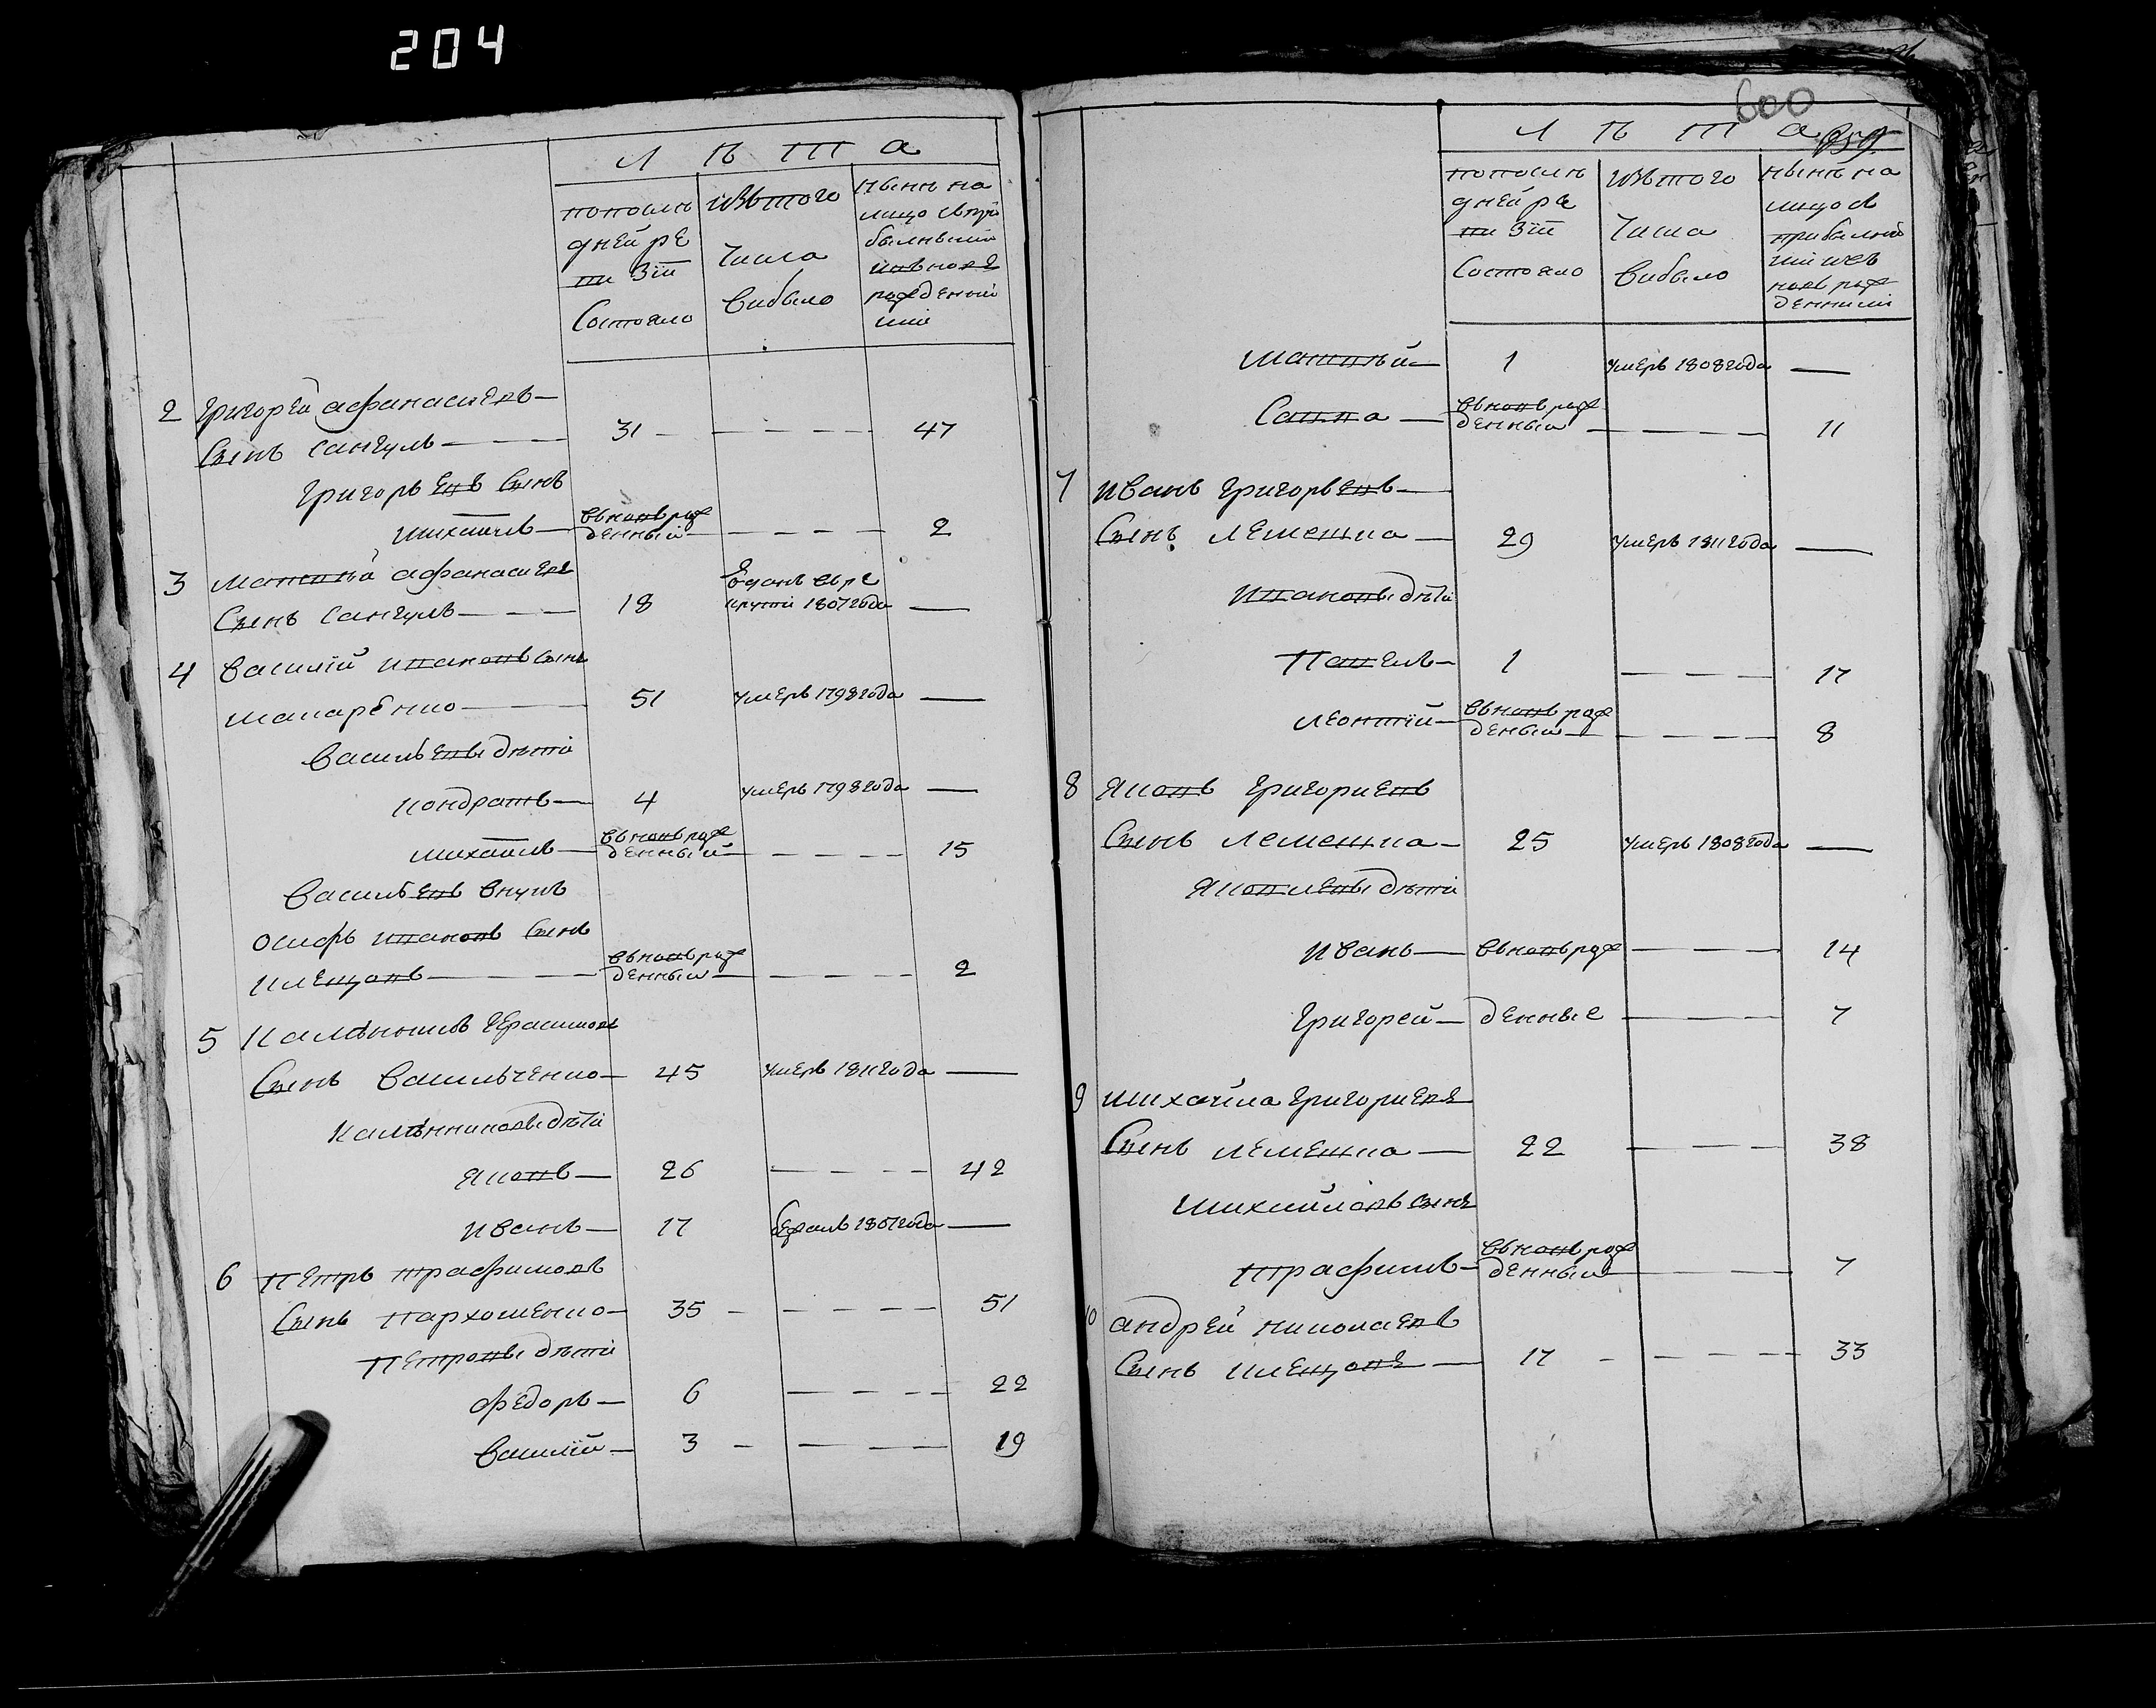 204
Л ѣ т а
попослѣ дней ре ви зіи Состояло
изътого Числа выбыло
нынѣ на лицо
2 Григорей афанасиевъ
Сынъ сангуль 31 47
Григорьевъ Сынъ
михаилъ вьновьрож денный 2
3 Матвѣй афанасиев
Сынъ сангуль 18 вданъ въре круты 1807 года
4 василій ивановъ сынъ
макаренко 51 умеръ 1798 года
васильевы дѣти
кондратъ 4 умеръ 1798 года
михаилъ вьновьрож денный 15
васильевъ внукъ
осифъ ивановъ Сынъ
клещовъ вьновьрож денный 2
5 Герасимов
Сынъ васильченко 45 умеръ 1811 года
дѣти
яковъ 26 42
иванъ 17 бежалъ 1807 года
6 петръ трафимовъ
Сынъ пархоменко 35 51
петровы дѣти
федоръ 6 22
василій 3 19
600
Л ѣ т а
попослѣ дней ре ви зіи Состояло
изътого Числа выбыло
нынѣ на лицо с
Матвѣй 1 умеръ 1808 года
Савка вьновьрож денный 11
7 иванъ Григорьевъ
Сынъ лемешка 29 умеръ 1811 года
ивановы дѣти
Павелъ 1 17
леонтій вьновьрож деный 8
8 яковъ Григориевъ
Сынъ лемешка 25 умеръ 1808 года
яковлевы дѣти
иванъ вьновьрож 14
Григорей денные 7
9 михайла григориев
Сынъ лемешка 22 38
михайловъ сынъ
трафимъ вьновьрож денный 7
10 андрей николаевъ
Сынъ клещов 17 33